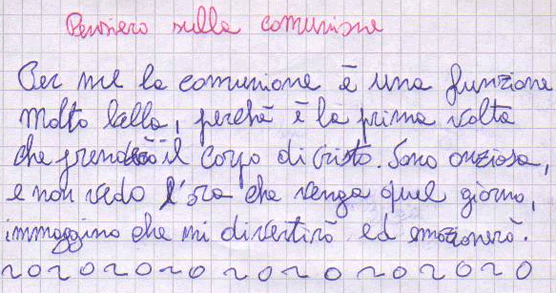 Pensiero sulla comunione
Per me la comunione è una funzione
molto bella, perchè è la prima volta
che prenderò il corpo di Cristo. Sono ansiosa,
e non vedo l'ora che venga quel giorno,
immaggino che mi divertirò ed emozionerò.